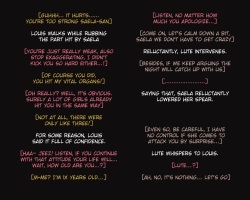 [Uhhhh... It hurts......
You're too strong Saela-san]
Louis walks while rubbing
the part hit by Saela
[You're just really weak, also
stop exaggerating, I didn't
kick you so hard either...]
[Of course you did,
you hit my vital organs!]
[Oh really? Well, it's obvious.
Surely a lot of girls already
hit you in the same way]
[Not at all, there were
only like three!]
For some reason, Louis
said it full of confidence.
[Haa~ Jeez! Listen, if you continue
with that attitude your life will...
Wait, how old are you...?]
[M-Me? I'm 1x years old...]
[Listen, no matter how
much you apologize...]
[Come on, let's calm down a bit,
Saela we don't have to get crazy]
Reluctantly, Lute intervenes.
[Besides, if we keep arguing the
night will catch up with us]
[.....................]
Saying that, Saela reluctantly
lowered her spear.
[Even so, be careful, I have
no control if she comes to
attack you by surprise...]
Lute whispers to Louis.
[Lute...?]
[Ah, no, it's nothing... Let's go]